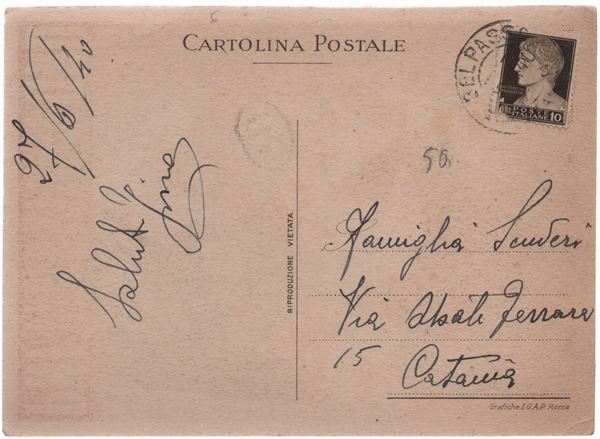 CARTOLINA POSTALE
27/6/40
Saluti
Gina
BELPASSO
POSTE
ITALIANE 10
50
RIPRODUZIONE VIETATA
Famiglia Scuderi
Via Abate Ferrara
15
Catania
Grafiche I.G.A.P. Roma